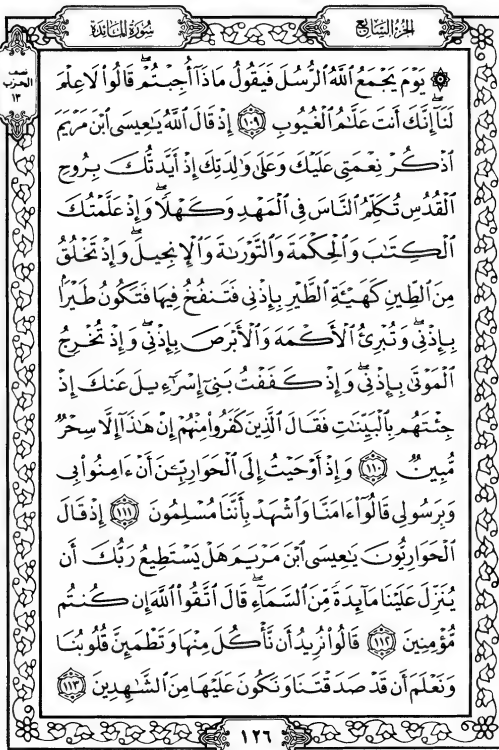 سُورَةُ المَائدة
الجزء السَّابع
نصف
الحزب
١٣
۞ يَوْمَ يَجْمَعُ ٱللَّهُ ٱلرُّسُلَ فَيَقُولُ مَاذَآ أُجِبْتُمْۖ قَالُوا۟ لَا عِلْمَ
لَنَآۖ إِنَّكَ أَنتَ عَلَّـٰمُ ٱلْغُيُوبِ ١٠٩ إِذْ قَالَ ٱللَّهُ يَـٰعِيسَى ٱبْنَ مَرْيَمَ
ٱذْكُرْ نِعْمَتِى عَلَيْكَ وَعَلَىٰ وَٰلِدَتِكَ إِذْ أَيَّدتُّكَ بِرُوحِ
ٱلْقُدُسِ تُكَلِّمُ ٱلنَّاسَ فِى ٱلْمَهْدِ وَكَهْلًاۖ وَإِذْ عَلَّمْتُكَ
ٱلْكِتَـٰبَ وَٱلْحِكْمَةَ وَٱلتَّوْرَىٰةَ وَٱلْإِنجِيلَۖ وَإِذْ تَخْلُقُ
مِنَ ٱلطِّينِ كَهَيْـَٔةِ ٱلطَّيْرِ بِإِذْنِى فَتَنفُخُ فِيهَا فَتَكُونُ طَيْرًۢا
بِإِذْنِىۖ وَتُبْرِئُ ٱلْأَكْمَهَ وَٱلْأَبْرَصَ بِإِذْنِىۖ وَإِذْ تُخْرِجُ
ٱلْمَوْتَىٰ بِإِذْنِىۖ وَإِذْ كَفَفْتُ بَنِىٓ إِسْرَٰٓءِيلَ عَنكَ إِذْ
جِئْتَهُم بِٱلْبَيِّنَـٰتِ فَقَالَ ٱلَّذِينَ كَفَرُوا۟ مِنْهُمْ إِنْ هَـٰذَآ إِلَّا سِحْرٌ
مُّبِينٌ ١١٠ وَإِذْ أَوْحَيْتُ إِلَى ٱلْحَوَارِيِّـۧنَ أَنْ ءَامِنُوا۟ بِى
وَبِرَسُولِى قَالُوٓا۟ ءَامَنَّا وَٱشْهَدْ بِأَنَّنَا مُسْلِمُونَ ١١١ إِذْ قَالَ
ٱلْحَوَارِيُّونَ يَـٰعِيسَى ٱبْنَ مَرْيَمَ هَلْ يَسْتَطِيعُ رَبُّكَ أَن
يُنَزِّلَ عَلَيْنَا مَآئِدَةً مِّنَ ٱلسَّمَآءِۖ قَالَ ٱتَّقُوا۟ ٱللَّهَ إِن كُنتُم
مُّؤْمِنِينَ ١١٢ قَالُوا۟ نُرِيدُ أَن نَّأْكُلَ مِنْهَا وَتَطْمَئِنَّ قُلُوبُنَا
وَنَعْلَمَ أَن قَدْ صَدَقْتَنَا وَنَكُونَ عَلَيْهَا مِنَ ٱلشَّـٰهِدِينَ ١١٣
١٢٦